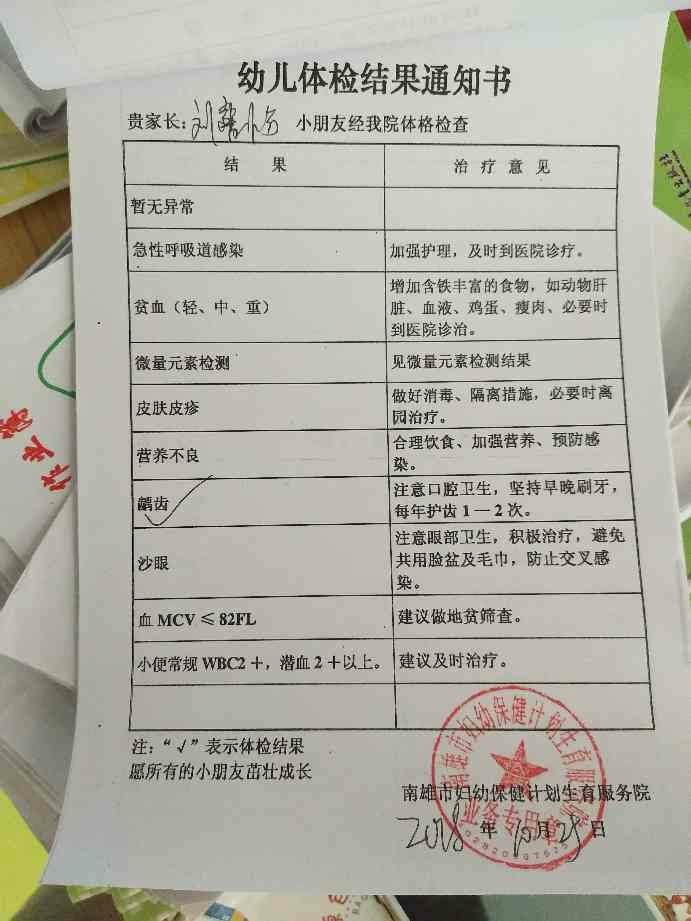 幼儿体检结果通知书
贵家长：刘 小朋友经我院体格检查
结 果 治 疗 意 见
暂无异常
急性呼吸道感染 加强护理，及时到医院诊疗。
贫血（轻、中、重） 增加含铁丰富的食物，如动物肝
脏、血液、鸡蛋、瘦肉、必要时
到医院诊治。
微量元素检测 见微量元素检测结果
皮肤皮疹 做好消毒、隔离措施，必要时离
园治疗。
营养不良 合理饮食、加强营养、预防感
染。
龋齿 √ 注意口腔卫生，坚持早晚刷牙，
每年护齿 1 — 2 次。
沙眼 注意眼部卫生，积极治疗，避免
共用脸盆及毛巾，防止交叉感
染。
血 MCV ≤ 82FL 建议做地贫筛查。
小便常规 WBC2＋，潜血 2＋以上。 建议及时治疗。
注：“√”表示体检结果
愿所有的小朋友茁壮成长
南雄市妇幼保健计划生育服务院
2018 年 10 月 29 日
南雄市妇幼保健计划生育服务院
业务专用章